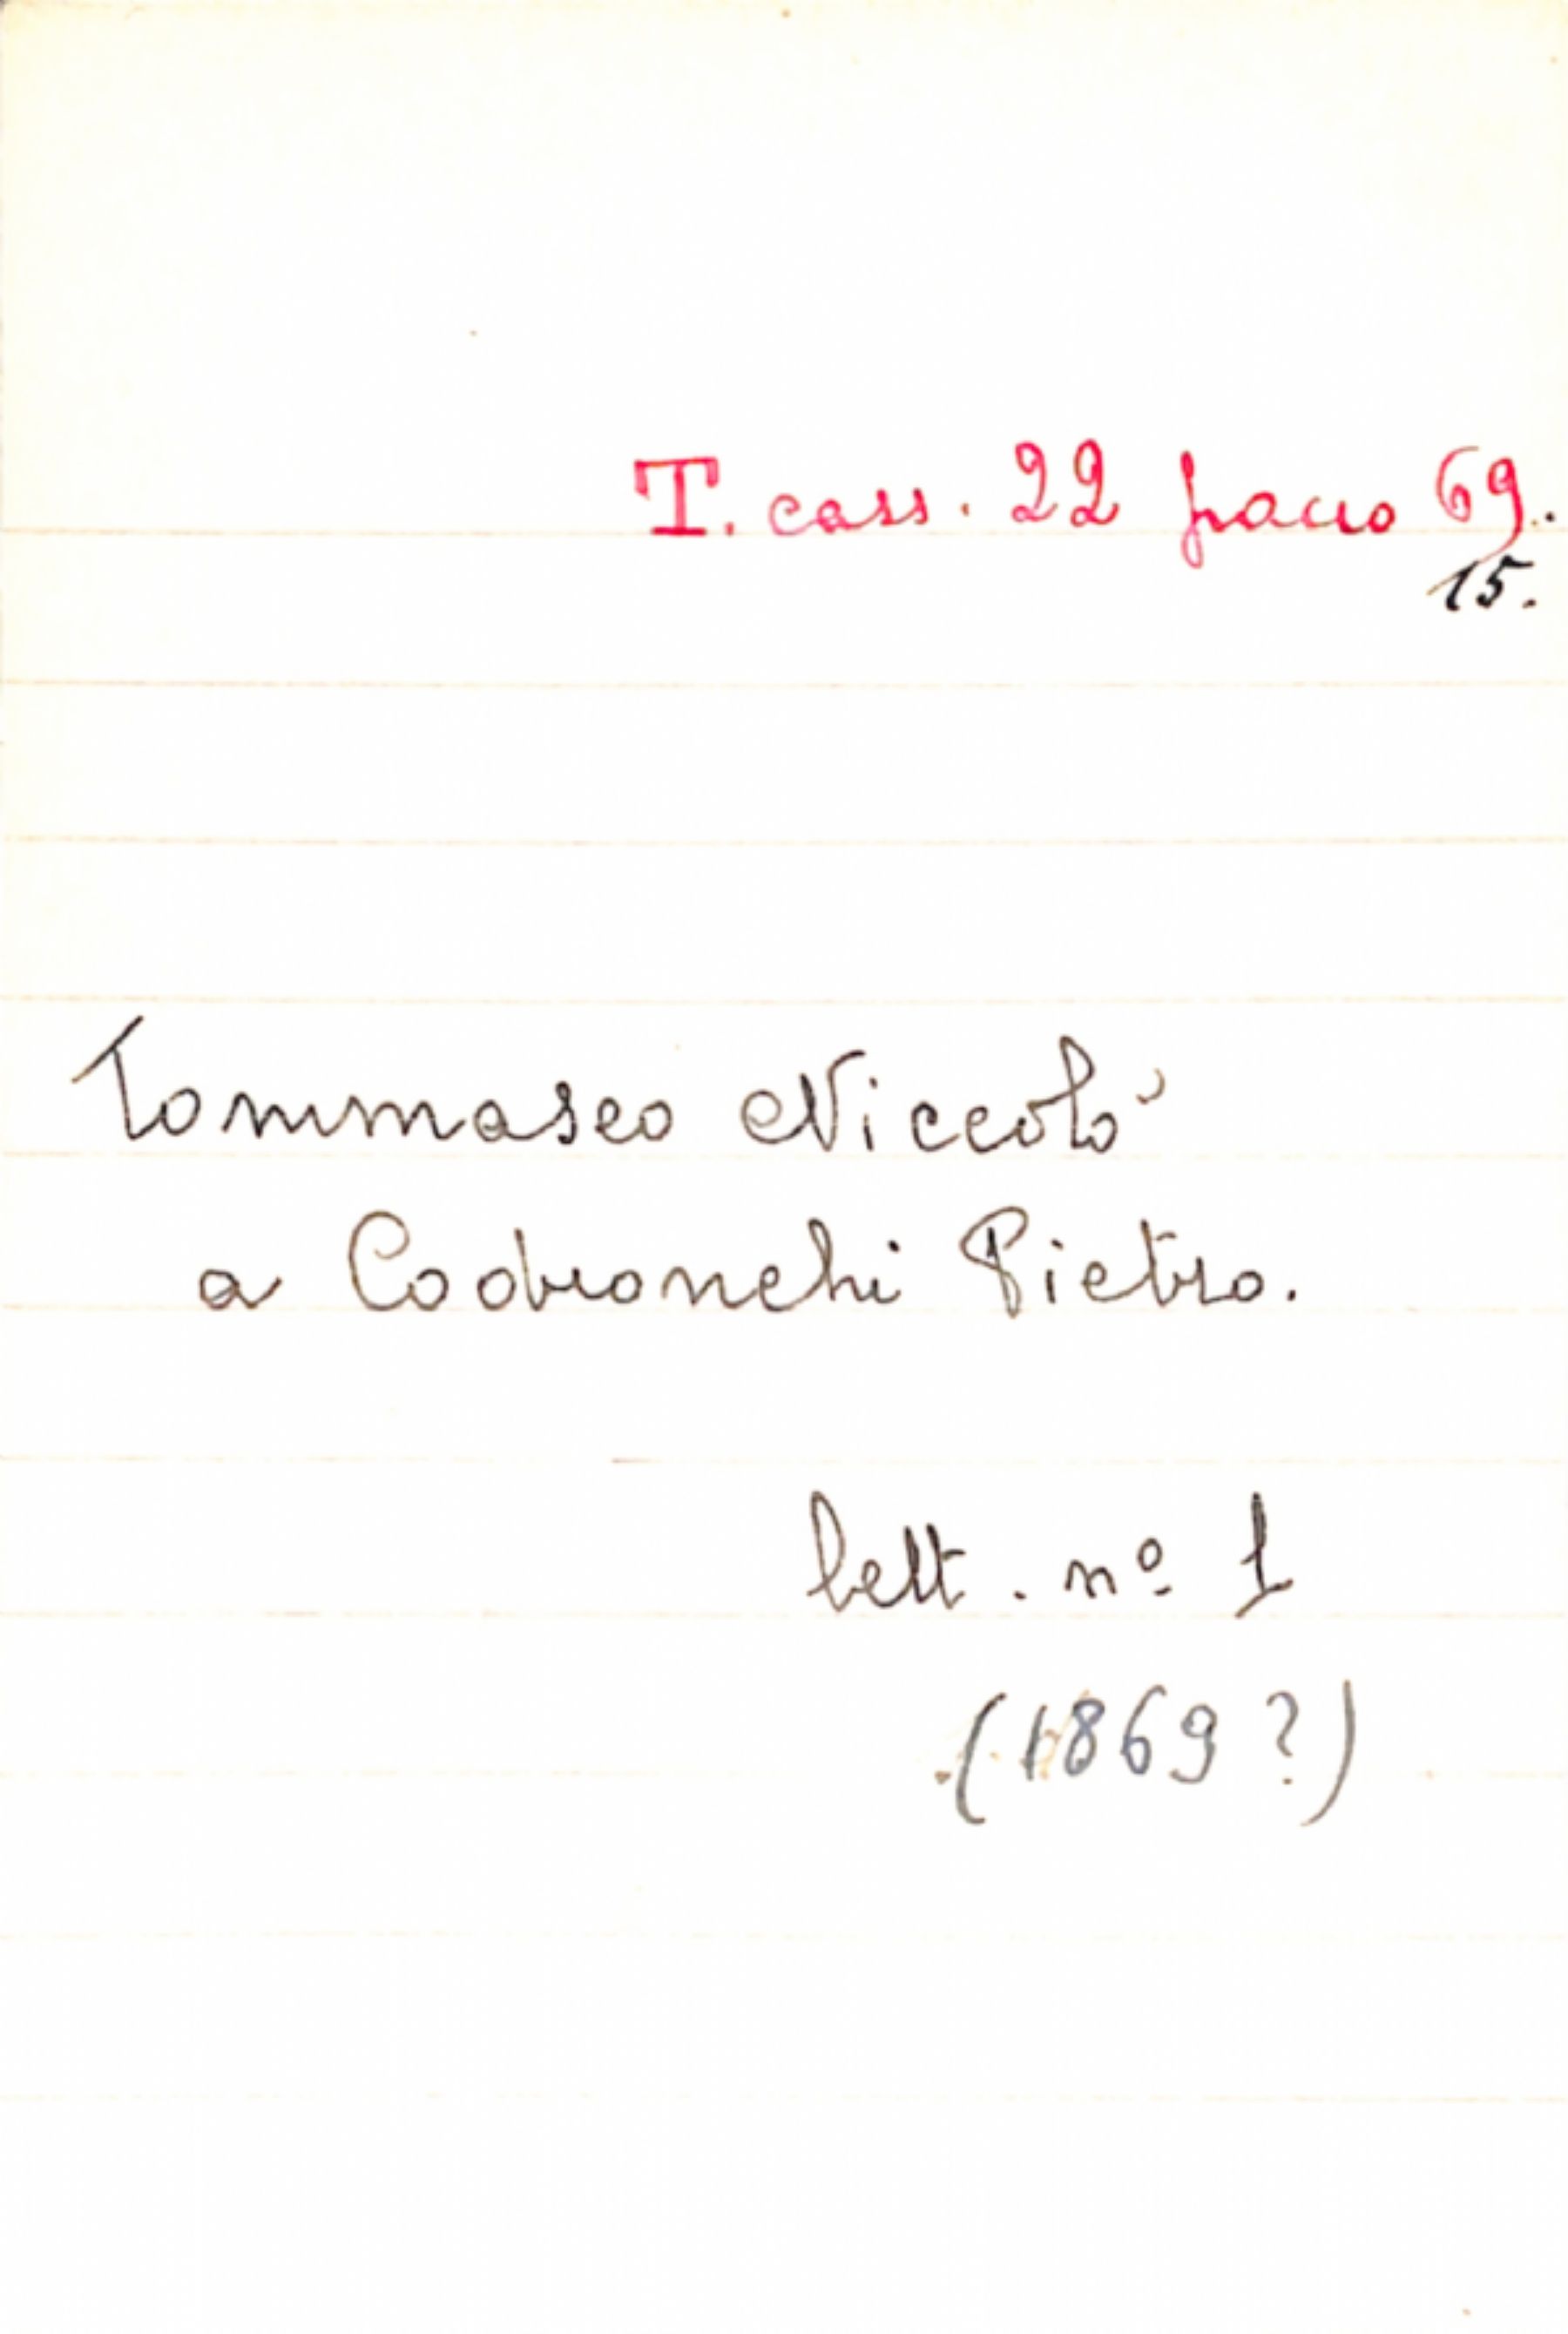 T. cass. 22 pacco 69.
15.
Tommaseo Niccolò
a Codronchi Pietro.
lett. nº 1
(1869?)